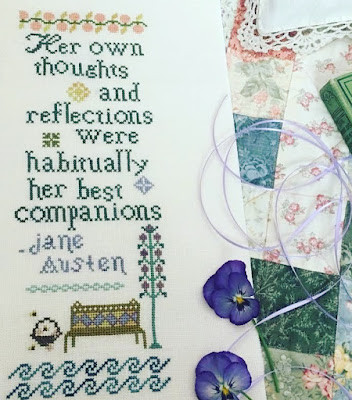 Her own
thoughts
and
reflections
were
habitually
her best
companions
-jane
Austen